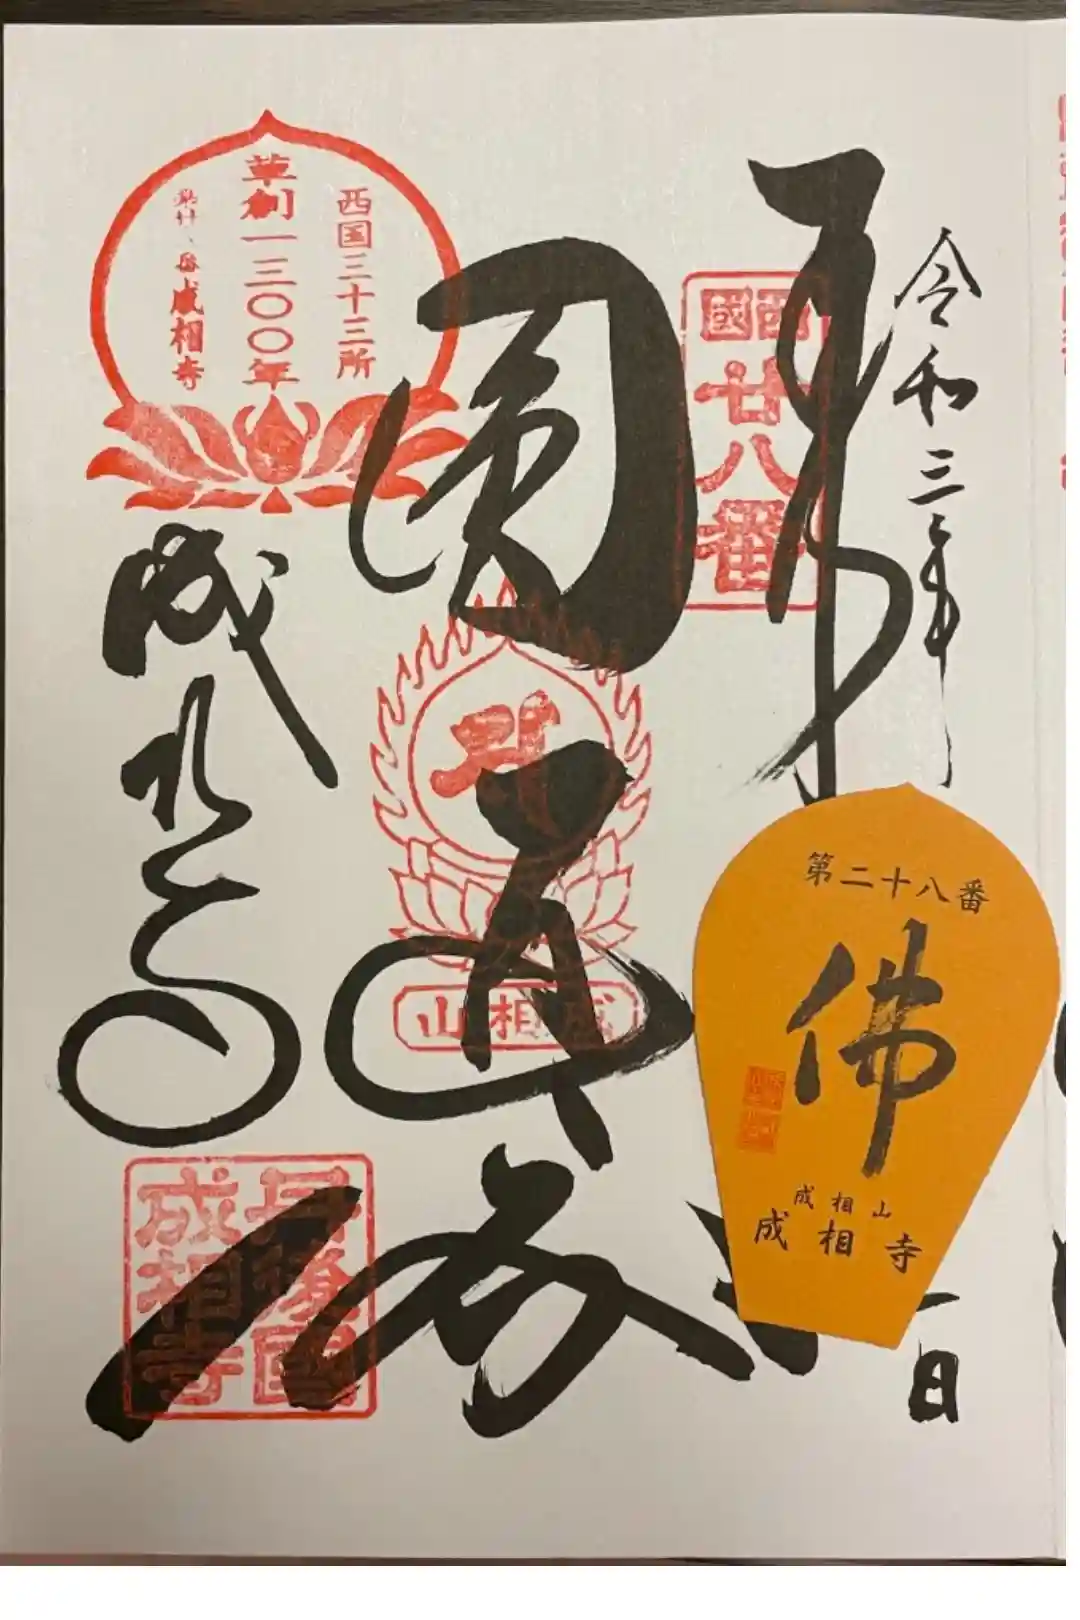 令和三年
一日
西國
廿八番
西国三十三所
草創一三〇〇年
成相寺
成相山
成相寺
丹後國
成相寺
第二十八番
佛
成相山
成相寺